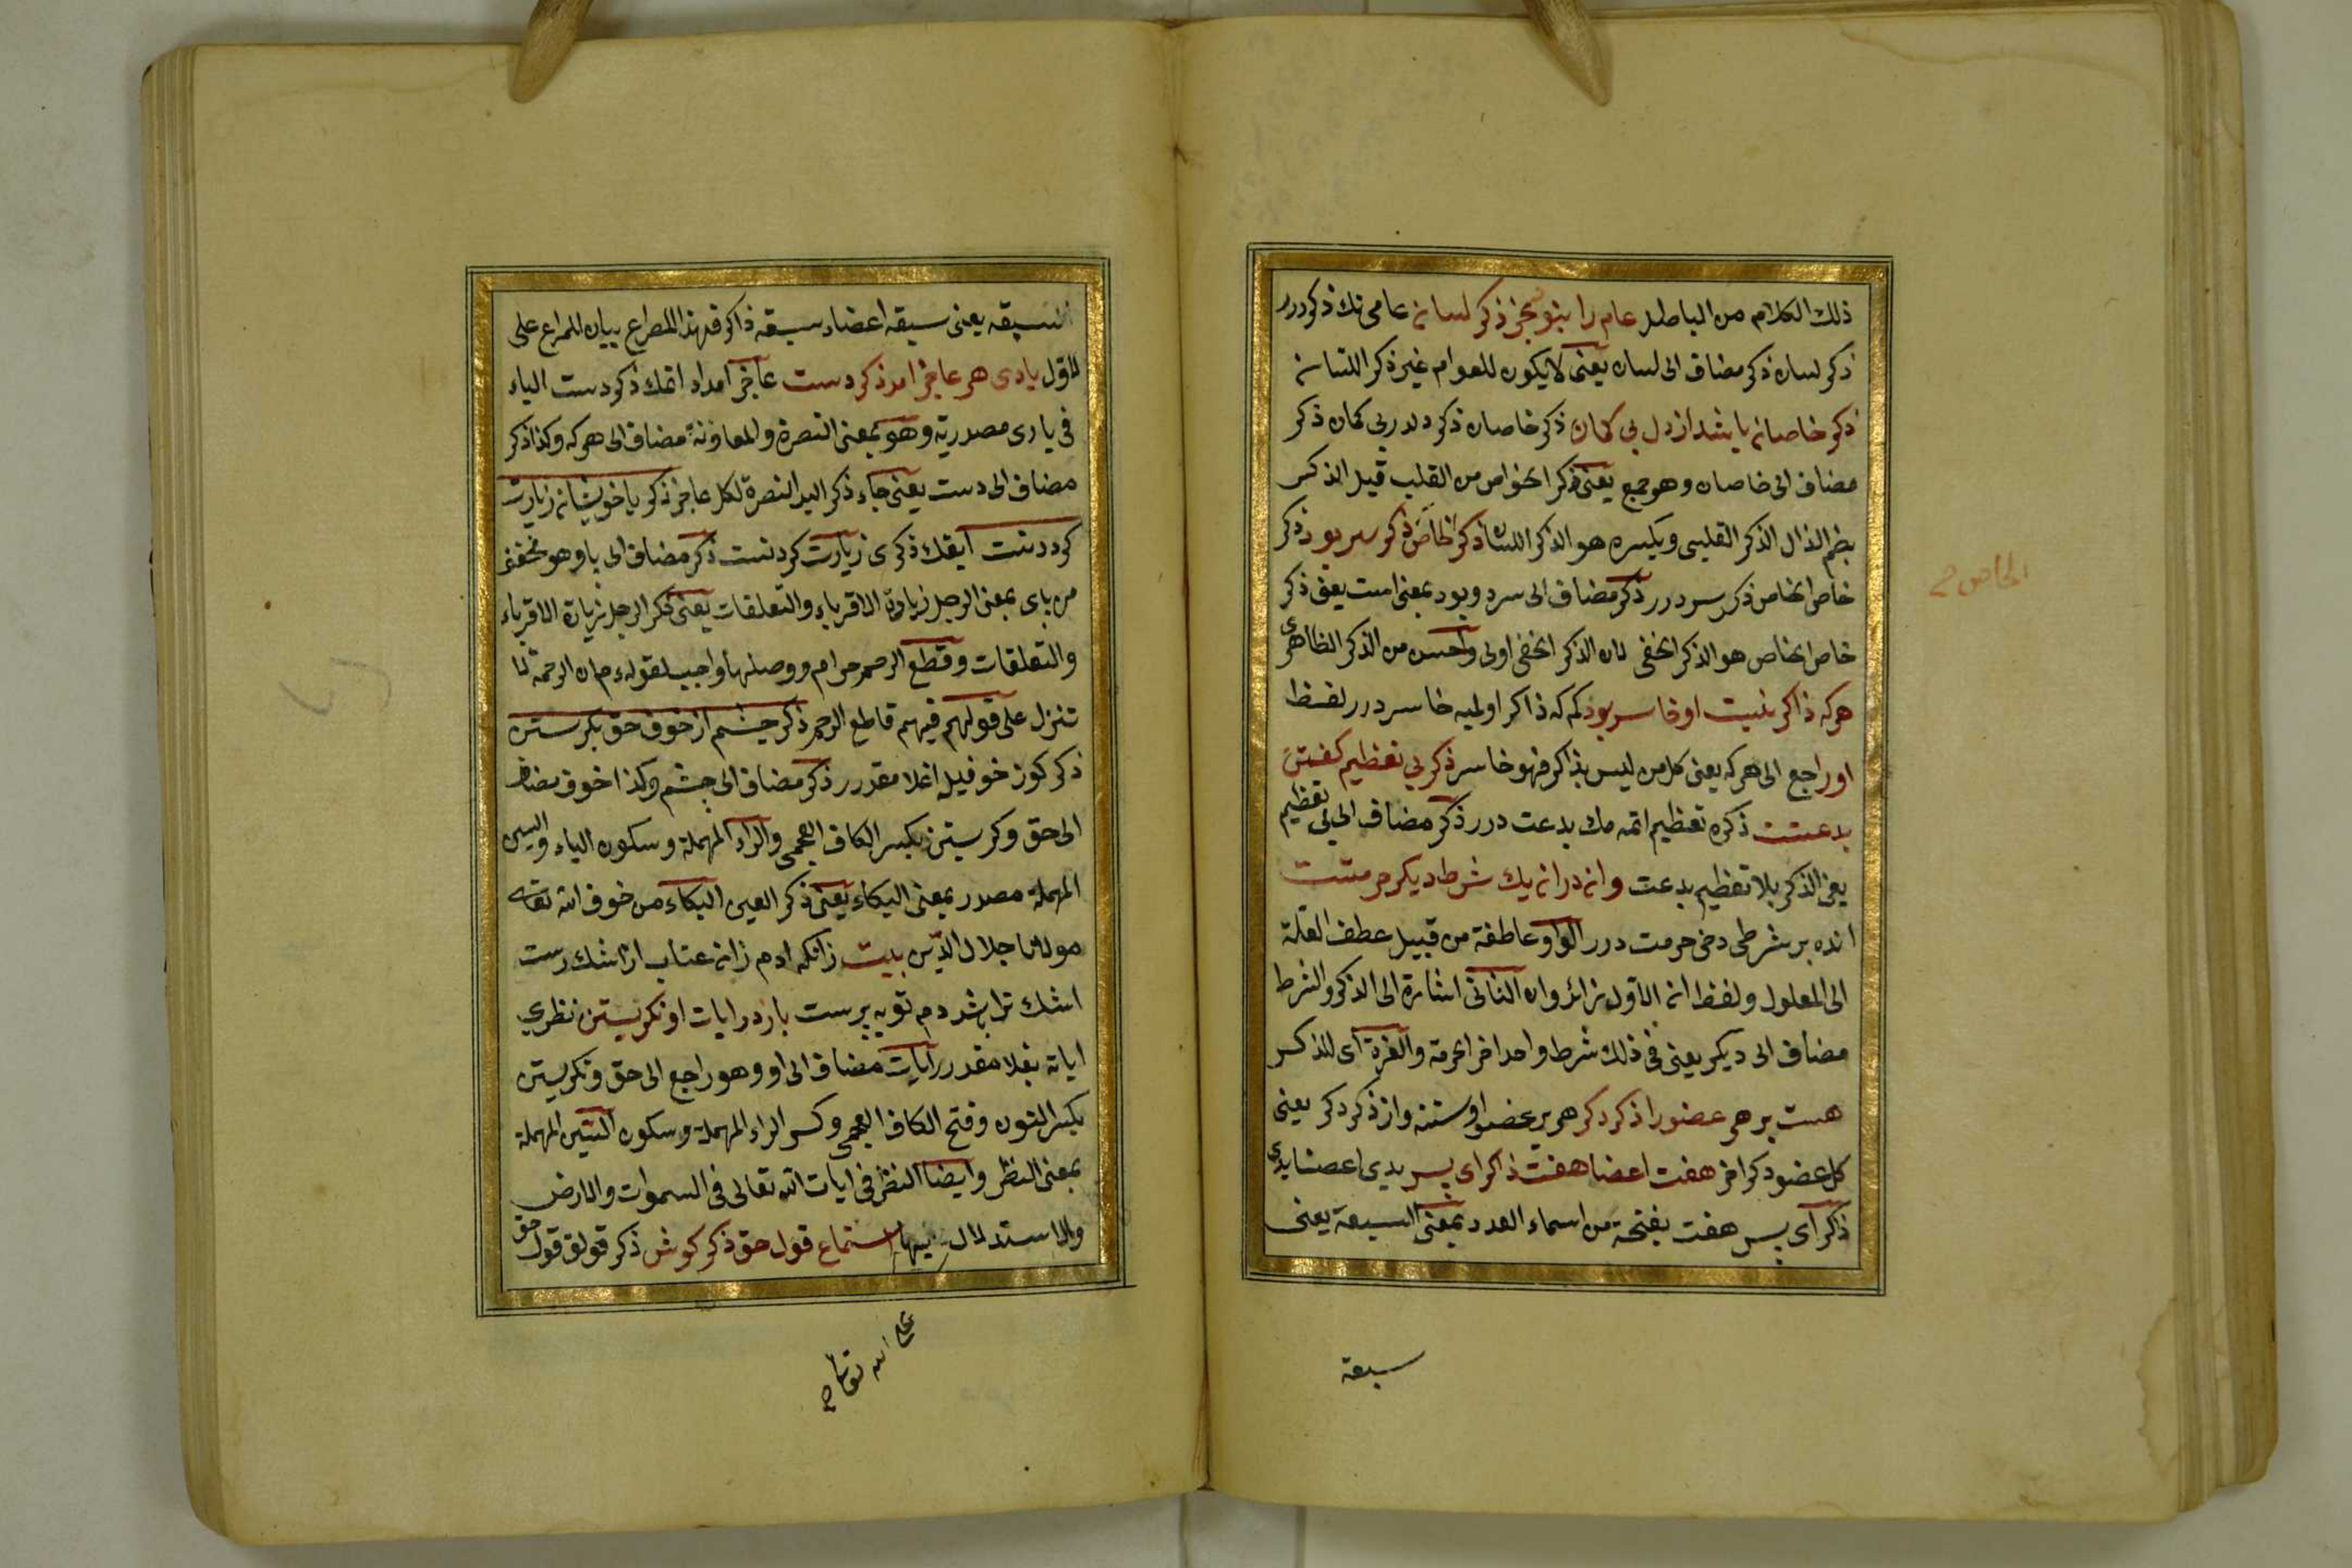 ذلك الكلام من الباطل عام را نبود بجز ذكر لسان عامى نك ذكردر
ذكر لسان ذكر مضاف الى لسان يعنى لا يكون للعوام غير ذكر اللسان
ذكر خاصان باشد از دل بى كمان ذكر خاصان ذكر دلدر بى كمان ذكر
مضاف الى خاصان وهو جمع يعنى ذكر الخواص من القلب قيل الذكر
بضم الذال الذكر القلبى وبكسره هو الذكر اللسان ذكر خاص ذكر سر بود ذكر
خاص الخاص ذكر سر درر ذكر مضاف الى سر وبود بمعنى است يعنى ذكر
خاص الخاص هو الذكر الخفى لان الذكر الخفى اولى واحسن من الذكر الظاهرى
هركه ذاكر نيست او خاسر بود كم كه ذاكر اولميه خاسر درر لفظ
او راجع الى هركه يعنى كل من ليس بذاكر فهو خاسر ذكر بى تعظيم كفتن
بدعتست ذكره تعظيم اتمه مك بدعت درر ذكر مضاف الى بى تعظيم
يعنى الذكر بلا تعظيم بدعت وانه دران يك شرط ديكر حرمتست
انده بر شرط دخى حرمت درر الواو عاطفة من قبيل عطف العلة
الى المعلول ولفظ انه الاول زائد وان الثانى اشارة الى الذكر والشرط
مضاف الى ديكر يعنى فى ذلك شرط واحد اخر الحرمة والعزة اى للذاكر
هست بر هر عضو را ذكر دكر هر بر عضو اوستنه واز ذكر دكر يعنى
كل عضو ذكر اخر هفت اعضا هفت ذاكر اى پسر يدى اعضا يدى
ذاكر اى پسر هفت بفتحة من اسماء العدد بمعنى السبعة يعنى
سبعة
الخاص
السبعه يعنى سبعه اعضاء سبعه ذاكر فهذا المصراع بيان للمراع على
الاول يادى هر عاجز امد ذكر دست عاجز امداد اتمك ذكر دست الياء
فى يارى مصدرية وهو بمعنى النصرة والمعاونة مضاف الى هركه وكذا ذكر
مضاف الى دست يعنى جاء ذكر اليد النصرة لكل عاجز ذكر پا خويشان زيارت
كردنست ايقك ذكرى زيارت كردنست ذكر مضاف الى پا وهو مخفف
من پاى بمعنى الرجل زيادة الاقرباء والتعلقات يعنى ذكر الرجل زيارة الاقرباء
والتعلقات وقطع الرحم حرام ووصلها واجب لقوله ءم ان الرحمة لا
تنزل على قولهم فيهم قاطع الرحم ذكر چشم از خوف حق بكرستن
ذكر كوز خوفيله اغلامقدرر ذكر مضاف الى چشم وكذا خوف مضاف
الى حق وكرستن بكسر الكاف العجمى والراء المهملة وسكون الياء والسين
المهملة مصدر بمعنى البكاء يعنى ذكر العين البكاء من خوف الله تعالى
مولانا جلال الدين بيت زانكه ادم زان عتاب از اشك رست
اشك تر باشد دم توبه پرست باز در ايات او نكرستن نظرى
اياته بغلامقدرر ايات مضاف الى او وهو راجع الى حق ونكريستن
بكسر النون وفتح الكاف العجمى وكسر الراء المهملة وسكون السين المهملة
بمعنى النظر وايضا النظر فى ايات الله تعالى فى السموات والارض
والاستدلال بهما استماع قول حق ذكر كوش ذكر قولق قول حق